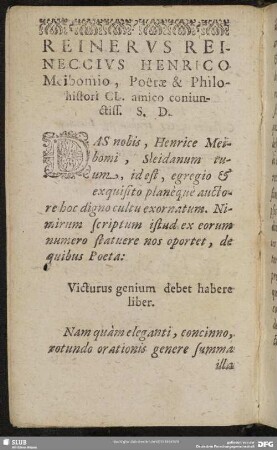 REINERVS REI-
NECCIVS HENRICO
Meibomio, Poëtæ & Philo-
histori CL. amico coniun-
ctiss. S. D.
DAS nobis, Henrice Mei-
bomi, Sleidanum tu-
um, id est, egregio &
exquisito planéque aucto-
re hoc digno cultu exornatum. Ni-
mirum scriptum istud ex eorum
numero statuere nos oportet, de
quibus Poëta:
Victurus genium debet habere
liber.
Nam quàm eleganti, concinno,
rotundo orationis genere summa
illa
SLUB